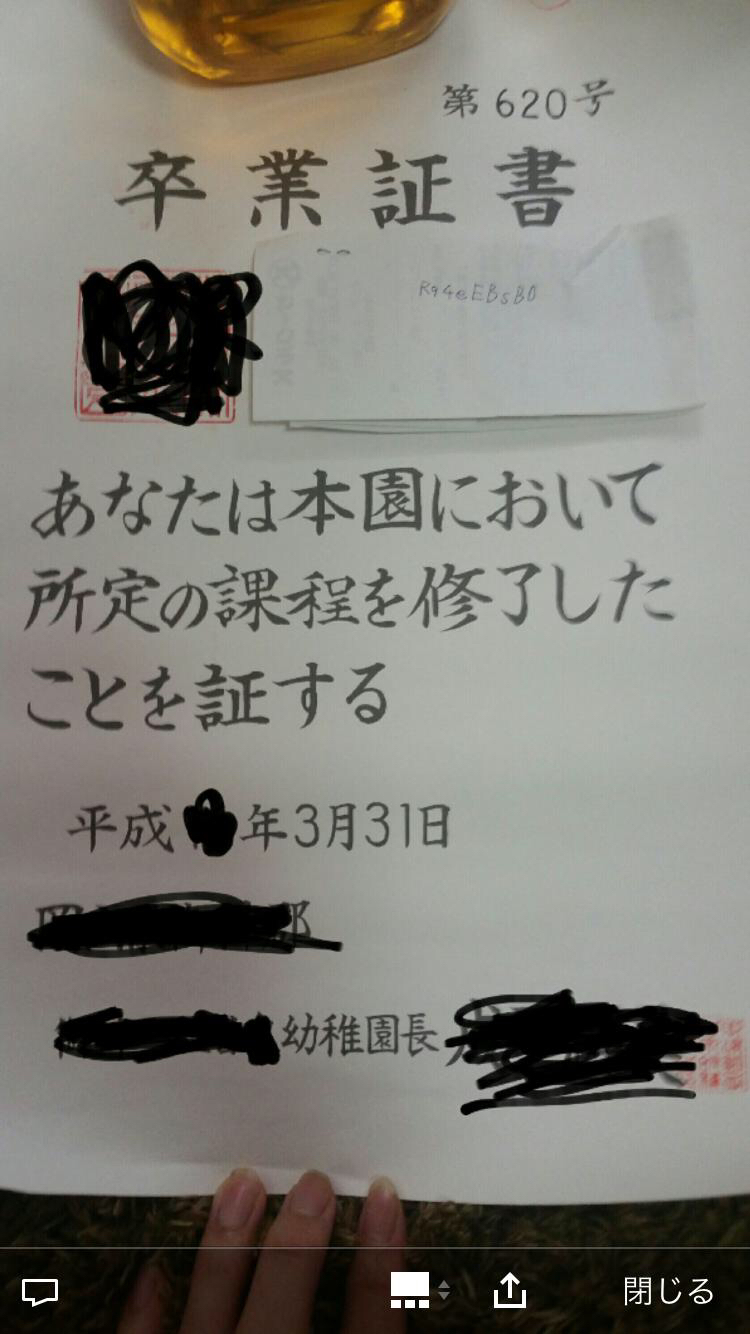 第620号
卒業証書
Rq4eEBsB0
あなたは本園において
所定の課程を修了した
ことを証する
平成 年3月31日
郎
幼稚園長
閉じる